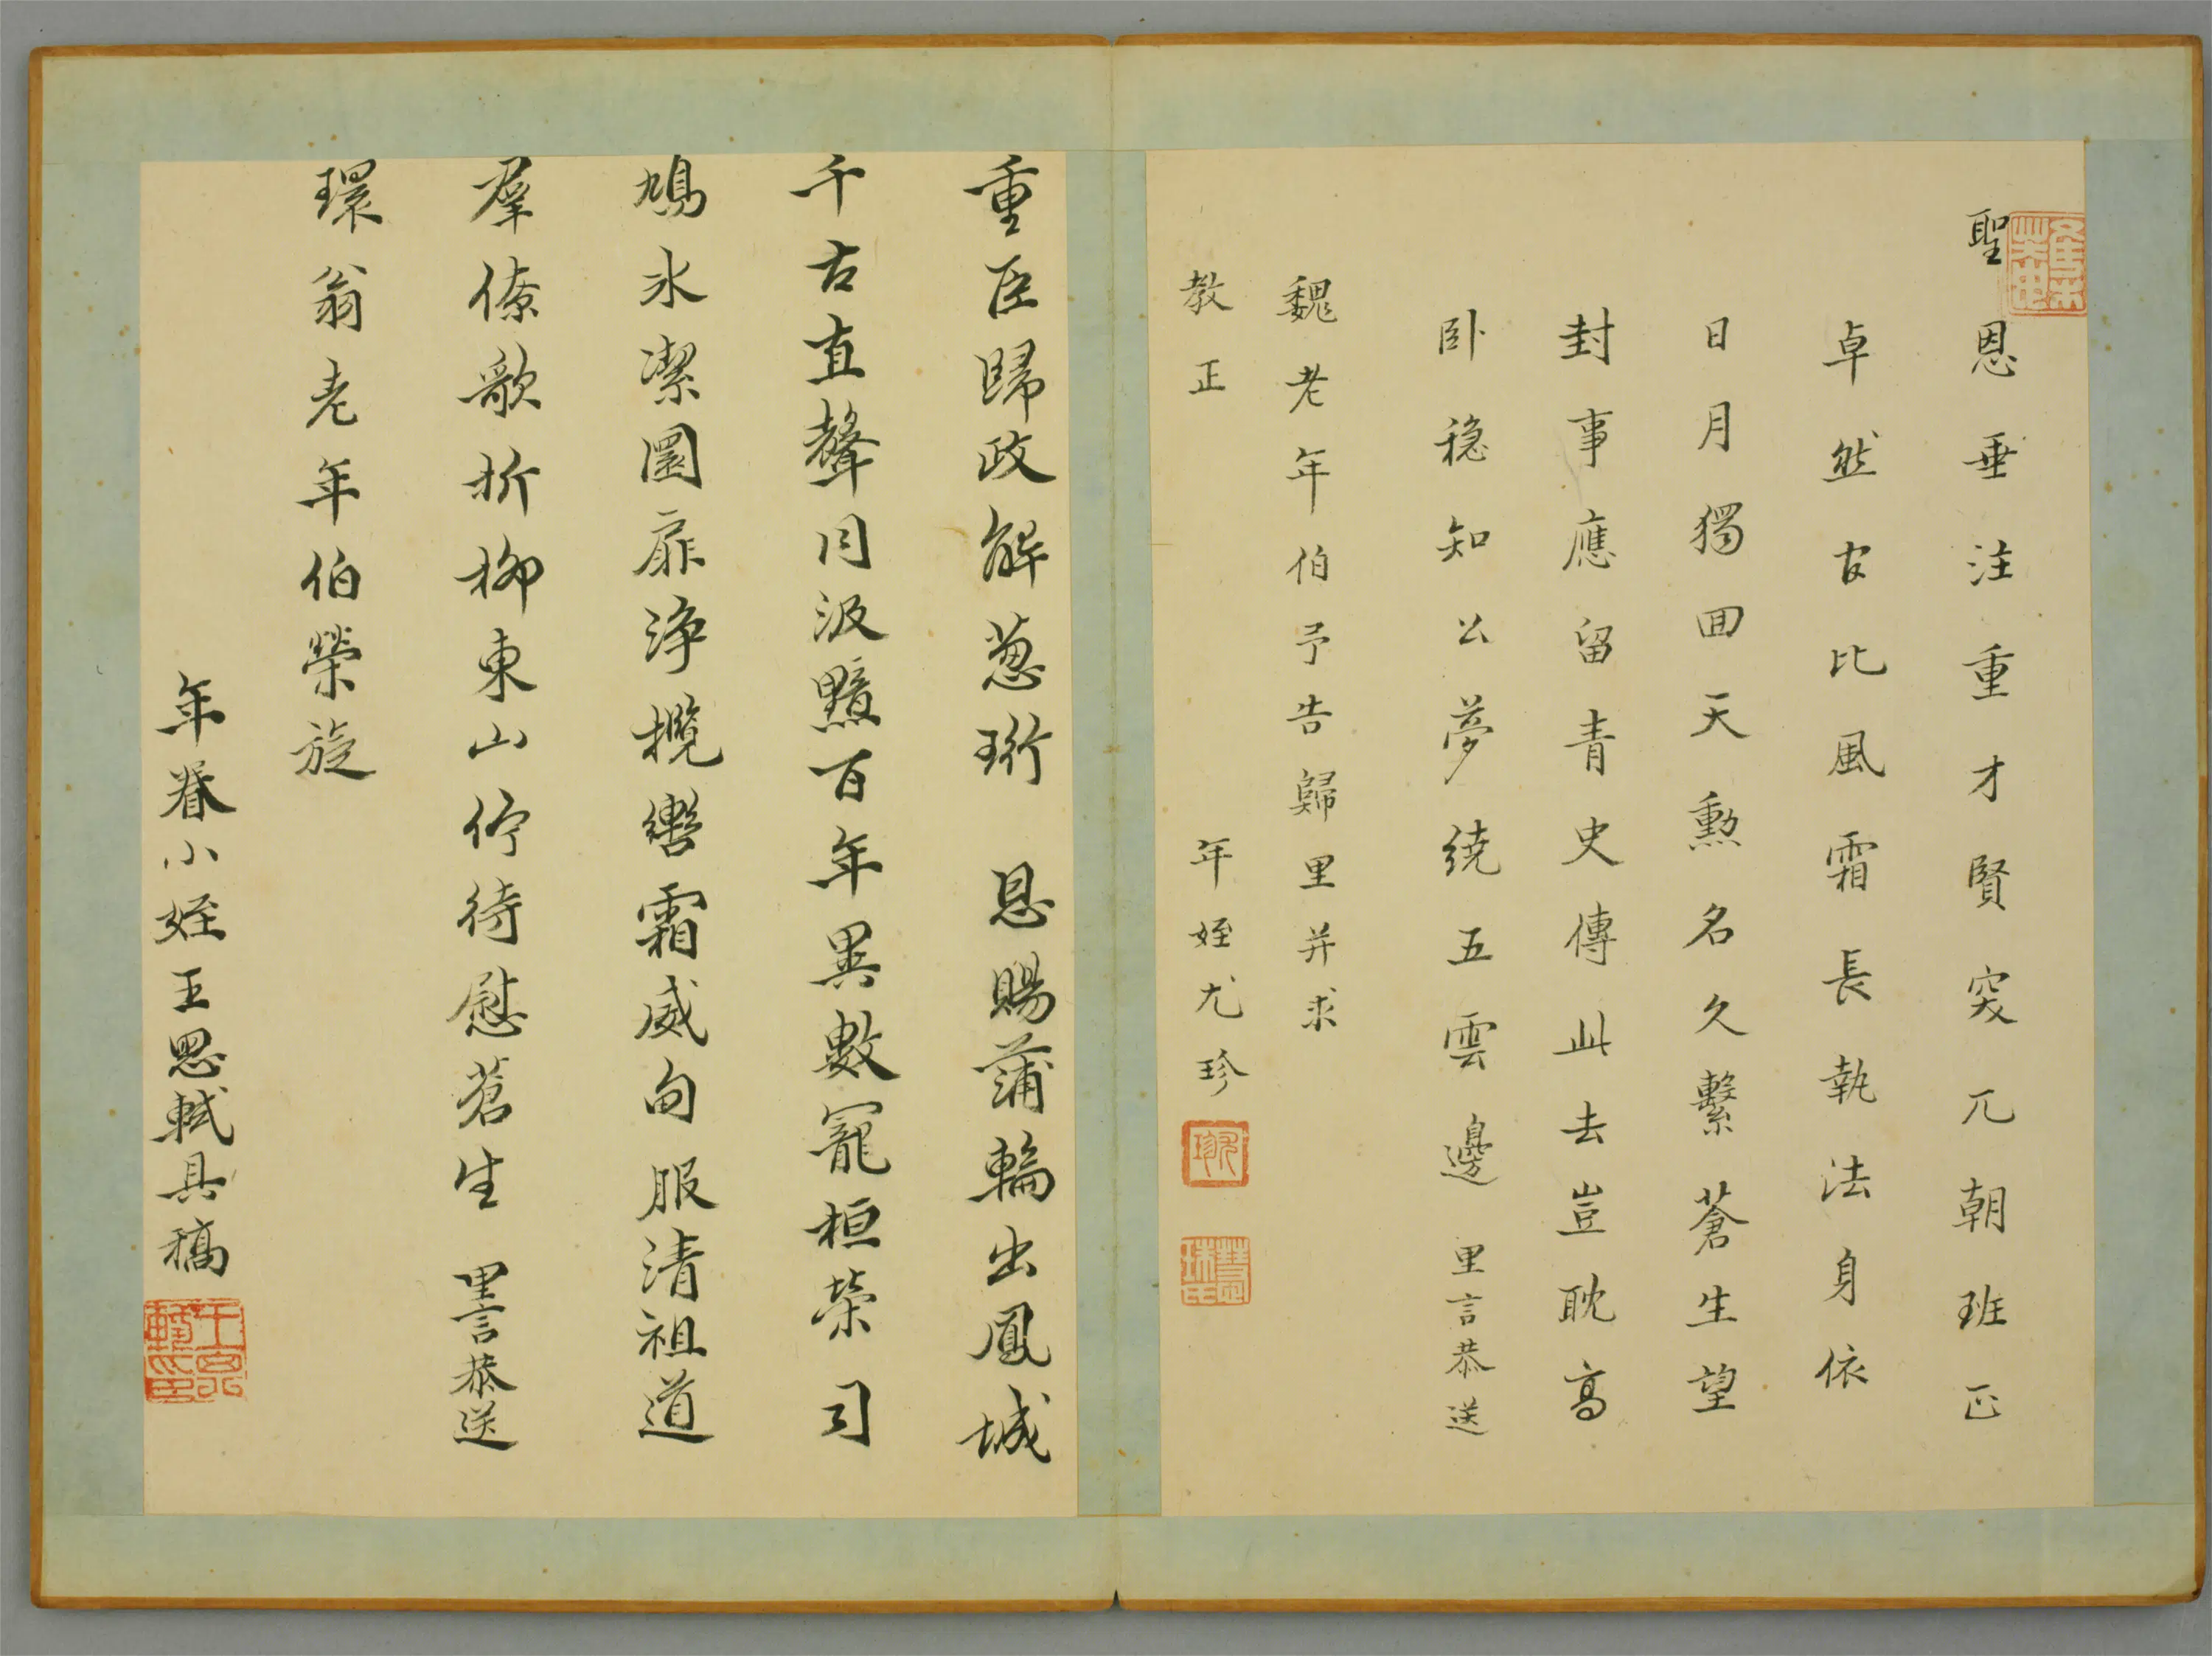 聖恩垂注重才賢突兀朝班正
卓然古比風霜長執法身依
日月獨回天勲名久繫蒼生望
封事應留青史傳此去豈耽高
臥穏知公夢繞五雲邊 里言恭送
魏老年伯予告歸里并求
教正 年姪尤珍
重臣歸政解蔥珩 恩賜蒲輪出鳳城
千古直聲同汲黯百年異數寵桓榮司
鳩氷潔圜扉淨攬轡霜威甸服清祖道
羣僚歌折柳東山佇待慰蒼生 里言恭送
環翁老年伯榮旋
年眷小姪王思軾具稿
王思軾印